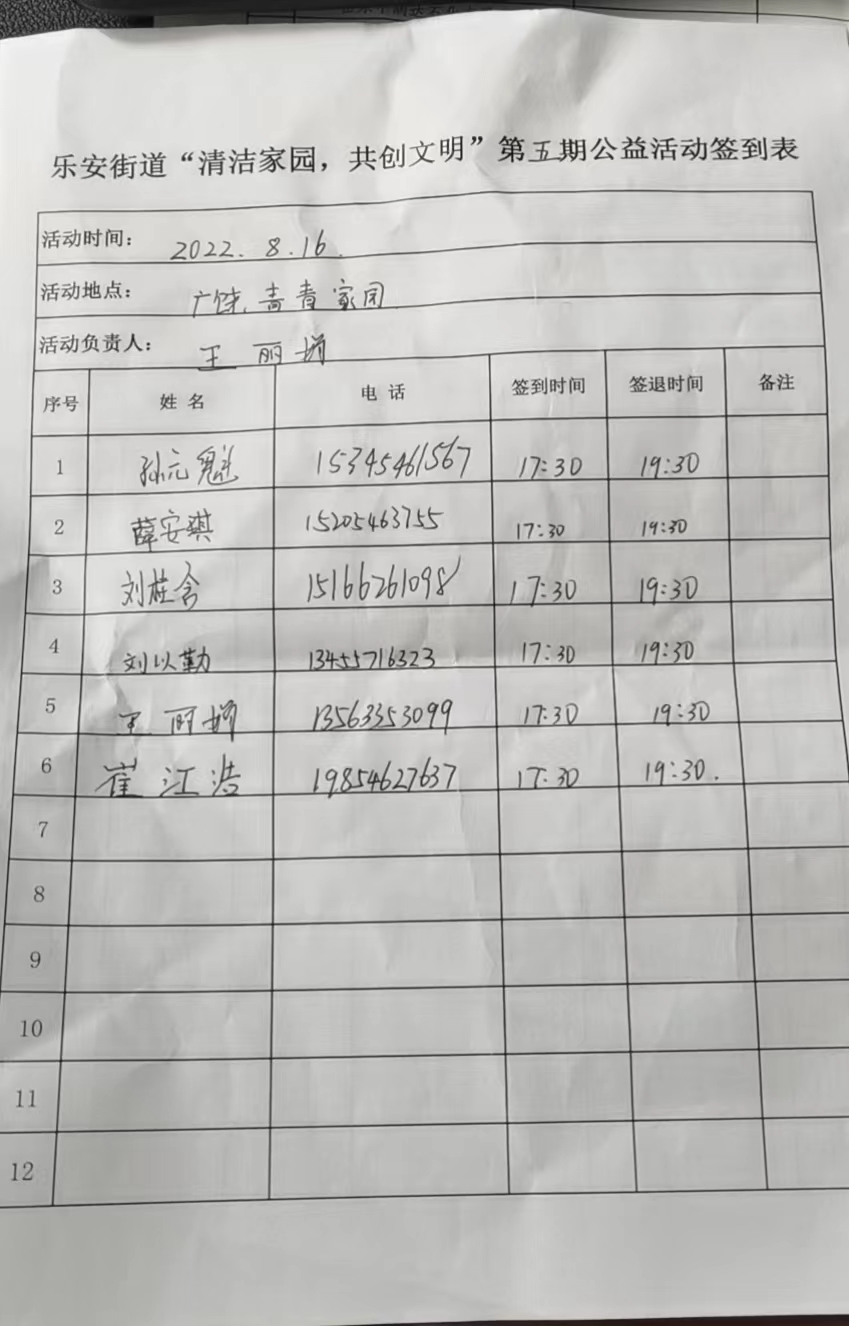 乐安街道“清洁家园，共创文明”第五期公益活动签到表
活动时间： 2022.8.16.
活动地点： 广饶青春家园
活动负责人： 王丽娟
序号 姓名 电话 签到时间 签退时间 备注
1 孙元魁 15345461567 17:30 19:30
2 薛安琪 15205463755 17:30 19:30
3 刘桂含 15166261098 17:30 19:30
4 刘以勤 13455716323 17:30 19:30
5 王丽娟 13563353099 17:30 19:30
6 崔江浩 19854627637 17:30 19:30.
7
8
9
10
11
12